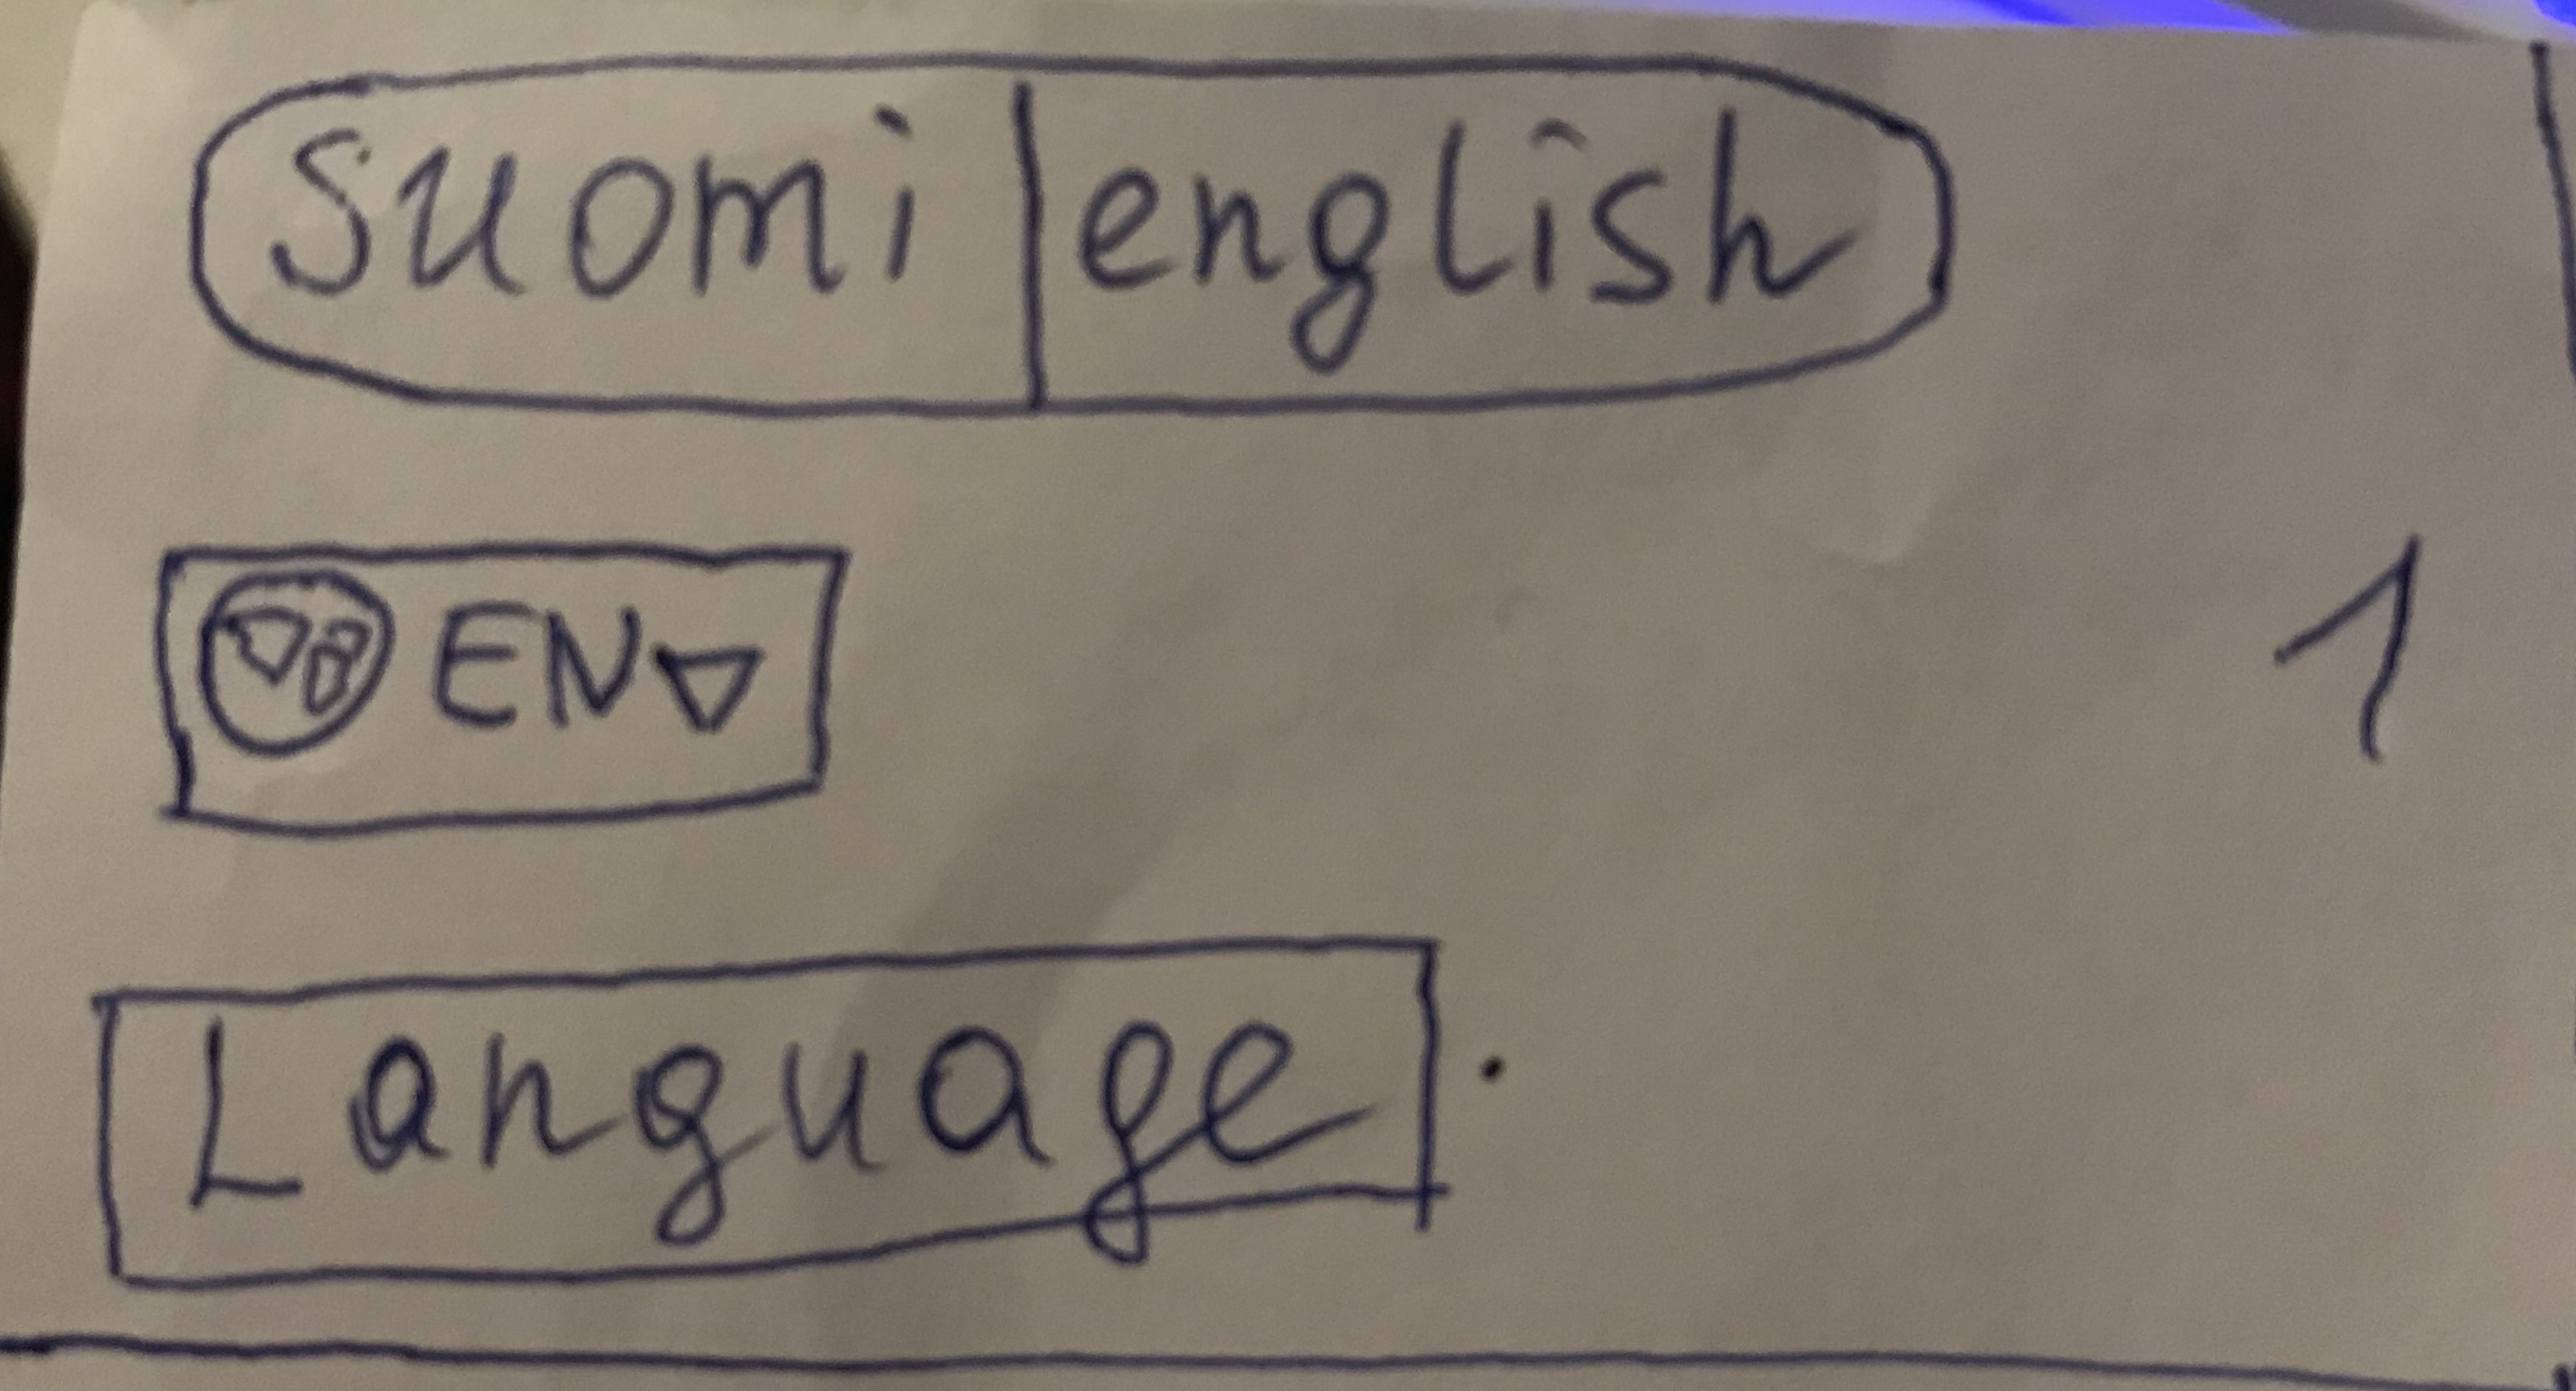 suomi english
EN
1
Language